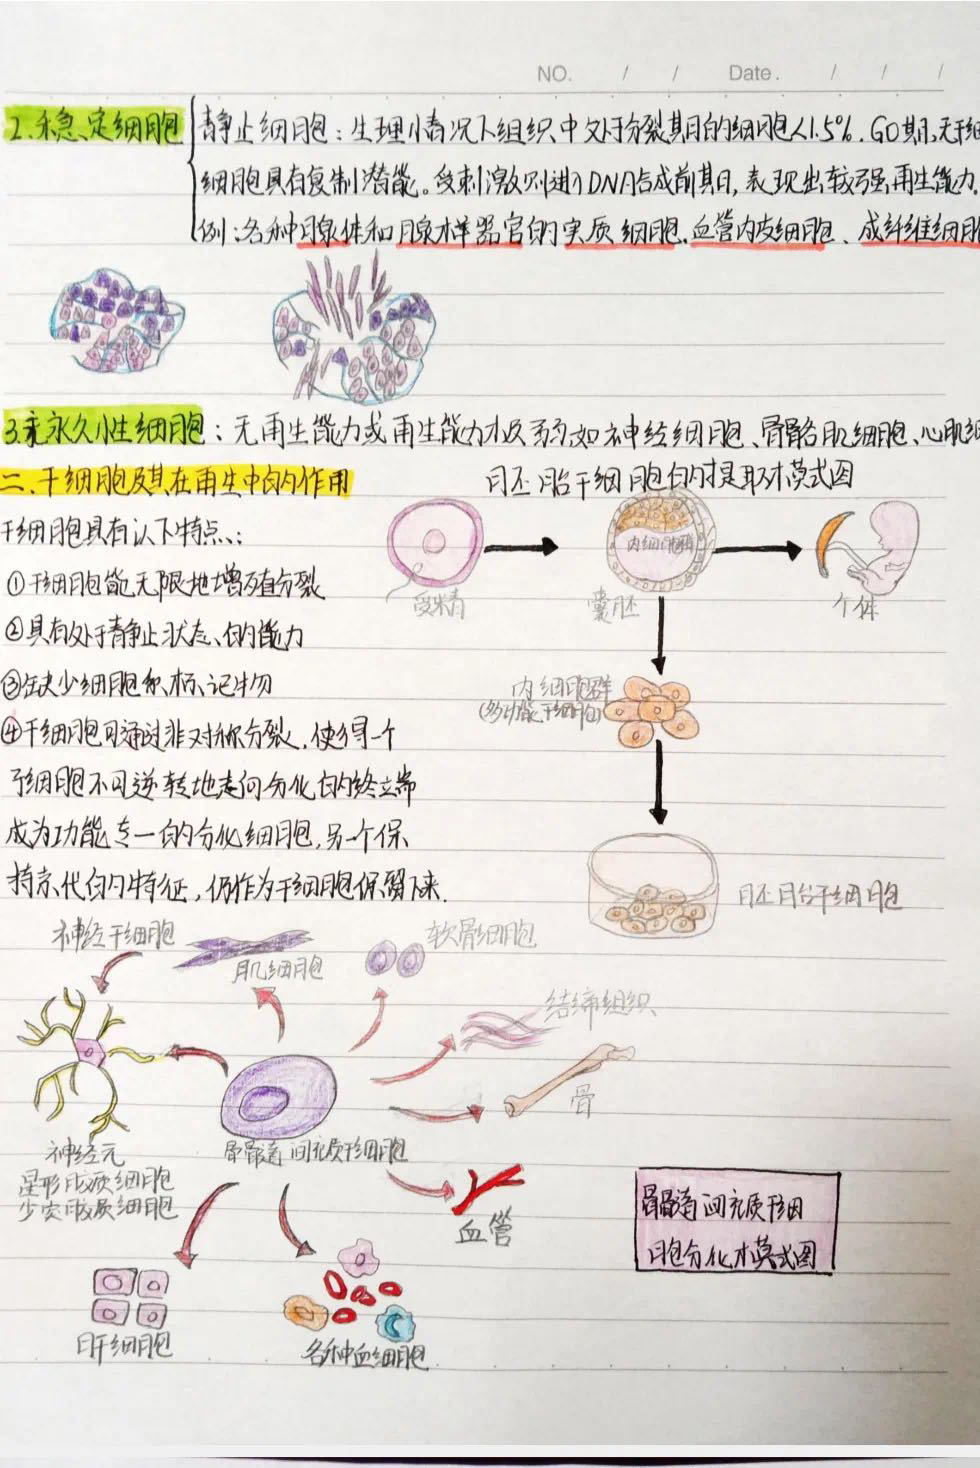 NO.    /    /    Date.    /    /    /
2.稳定细胞 静止细胞：生理情况下组织中处于分裂期的细胞<1.5%. G0期,
细胞具有复制潜能。受刺激则进入DNA合成前期, 表现出较强再生能力.
例：各种腺体和腺样器官的实质细胞.血管内皮细胞、成纤维细胞
3.永久性细胞：无再生能力或再生能力极弱如神经细胞、骨骼肌细胞、心肌
二、干细胞及其在再生中的作用
胚胎干细胞的提取模式图
干细胞具有以下特点：
受精
囊胚
内细胞群
个体
①干细胞能无限地增殖分裂
②具有处于静止状态的能力
③缺少细胞系标记物
内细胞群
(多功能干细胞)
④干细胞可通过非对称分裂,使得一个
子细胞不可逆转地走向分化的终端
成为功能专一的分化细胞,另一个保
持亲代的特征,仍作为干细胞保留下来.
胚胎干细胞
神经干细胞
肌细胞
软骨细胞
结缔组织
骨
神经元
星形胶质细胞
少突胶质细胞
骨髓间充质干细胞
血管
骨髓间充质干细
胞分化模式图
肝细胞
各种血细胞